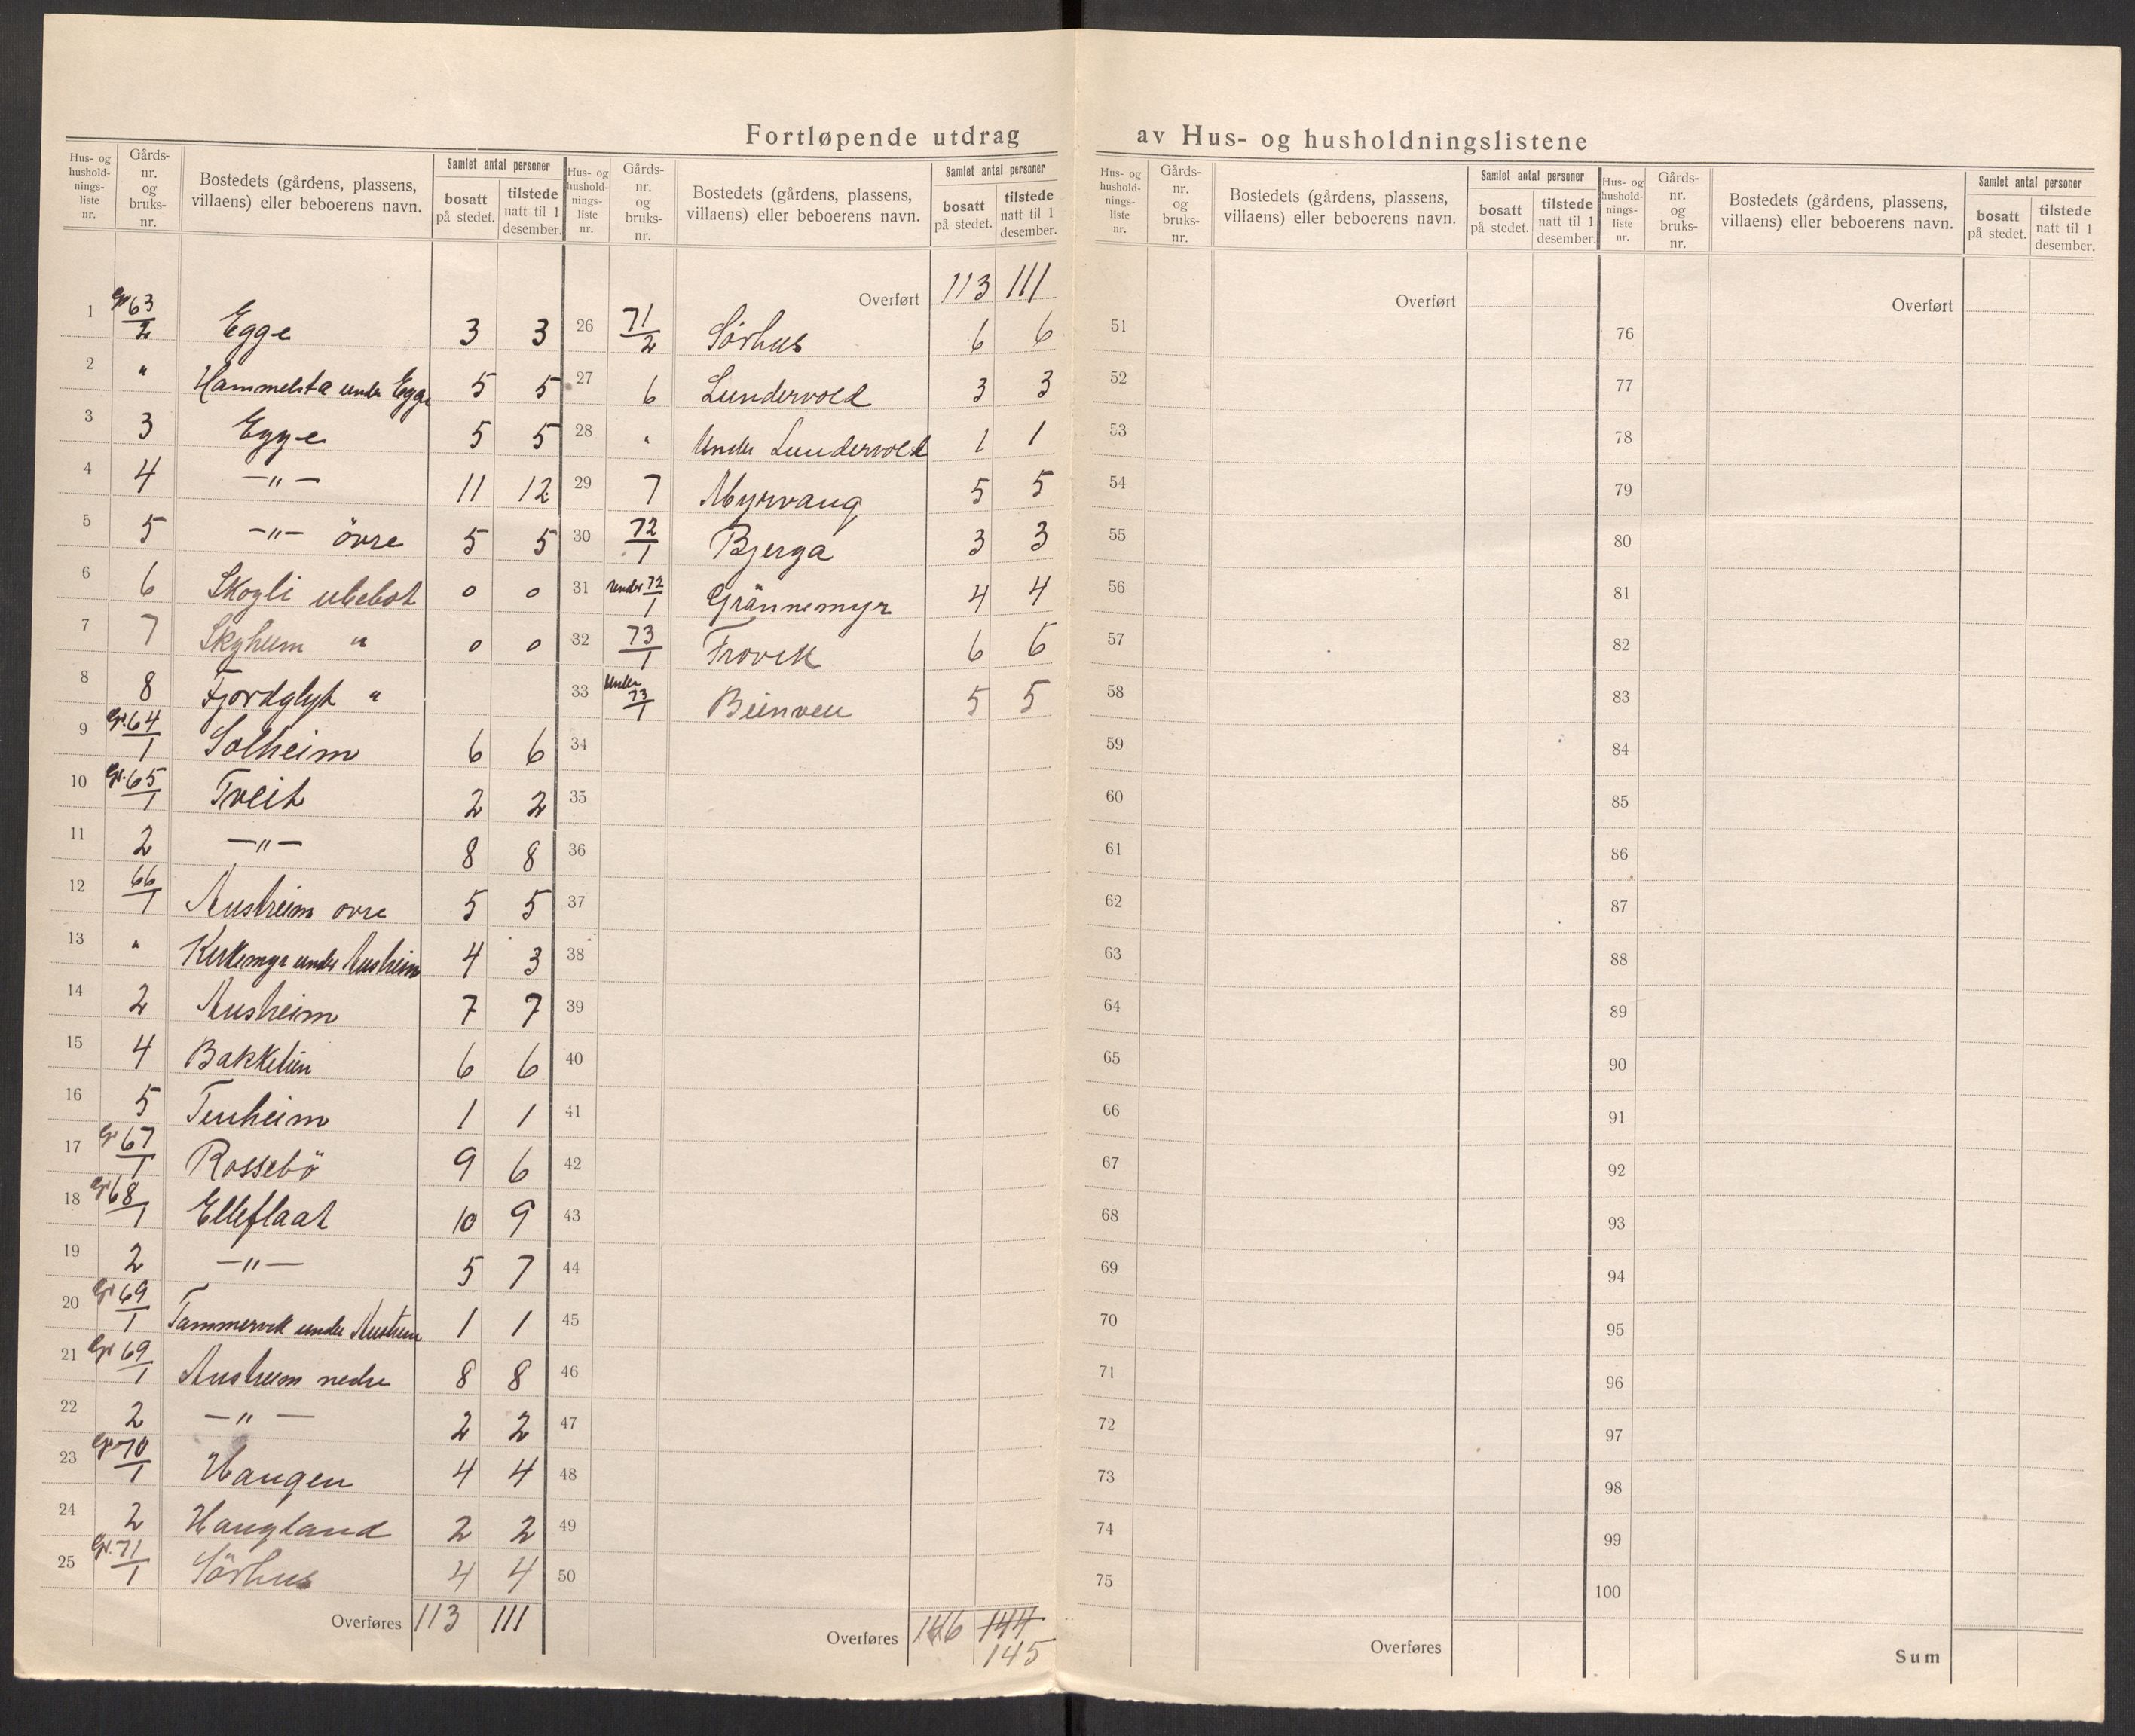 Fortløpende utdrag av Hus- og husholdningslistene
Hus- og hushold-nings-liste nr. Gårds-nr. og bruks-nr. Bostedets (gårdens, plassens, villaens) eller beboerens navn. Samlet antal personer bosatt på stedet. tilstede natt til 1 desember.
1 Gr 63/2 Egge 3 3
2 " Hammelsta under Egge 5 5
3 3 Egge 5 5
4 4 —"— 11 12
5 5 —"— övre 5 5
6 6 Skogli ubebot 0 0
7 7 Skyheim " 0 0
8 8 Fjordglyt "
9 Gr. 64/1 Solheim 6 6
10 Gr. 65/1 Tveit 2 2
11 2 —"— 8 8
12 66/1 Austreim ovre 5 5
13 " Kirkemyr under Austreim 4 3
14 2 Austreim 7 7
15 4 Bakketun 6 6
16 5 Tunheim 1 1
17 Gr 67/1 Rossebö 9 6
18 Gr 68/1 Elleflaat 10 9
19 2 —"— 5 7
20 Gr 69/1 Tammervik under Austreim 1 1
21 Gr 69/1 Austreim nedre 8 8
22 2 —"— 2 2
23 Gr 70/1 Haugen 4 4
24 2 Haugland 2 2
25 Gr. 71/1 Sörhus 4 4
Overføres 113 111
Hus- og hushold-nings-liste nr. Gårds-nr. og bruks-nr. Bostedets (gårdens, plassens, villaens) eller beboerens navn. Samlet antal personer bosatt på stedet. tilstede natt til 1 desember.
Overført 113 111
26 71/2 Sörhus 6 6
27 6 Lundervold 3 3
28 " Under Lundervold 1 1
29 7 Myrvang 5 5
30 72/1 Bjerga 3 3
31 under 72/1 Grännemyr 4 4
32 73/1 Frovik 6 6
33 Under 73/1 5 5
34
35
36
37
38
39
40
41
42
43
44
45
46
47
48
49
50
Overføres 146 144
145
Hus- og hushold-nings-liste nr. Gårds-nr. og bruks-nr. Bostedets (gårdens, plassens, villaens) eller beboerens navn. Samlet antal personer bosatt på stedet. tilstede natt til 1 desember.
Overført
51
52
53
54
55
56
57
58
59
60
61
62
63
64
65
66
67
68
69
70
71
72
73
74
75
Overføres
Hus- og hushold-nings-liste nr. Gårds-nr. og bruks-nr. Bostedets (gårdens, plassens, villaens) eller beboerens navn. Samlet antal personer bosatt på stedet. tilstede natt til 1 desember.
Overført
76
77
78
79
80
81
82
83
84
85
86
87
88
89
90
91
92
93
94
95
96
97
98
99
100
Sum